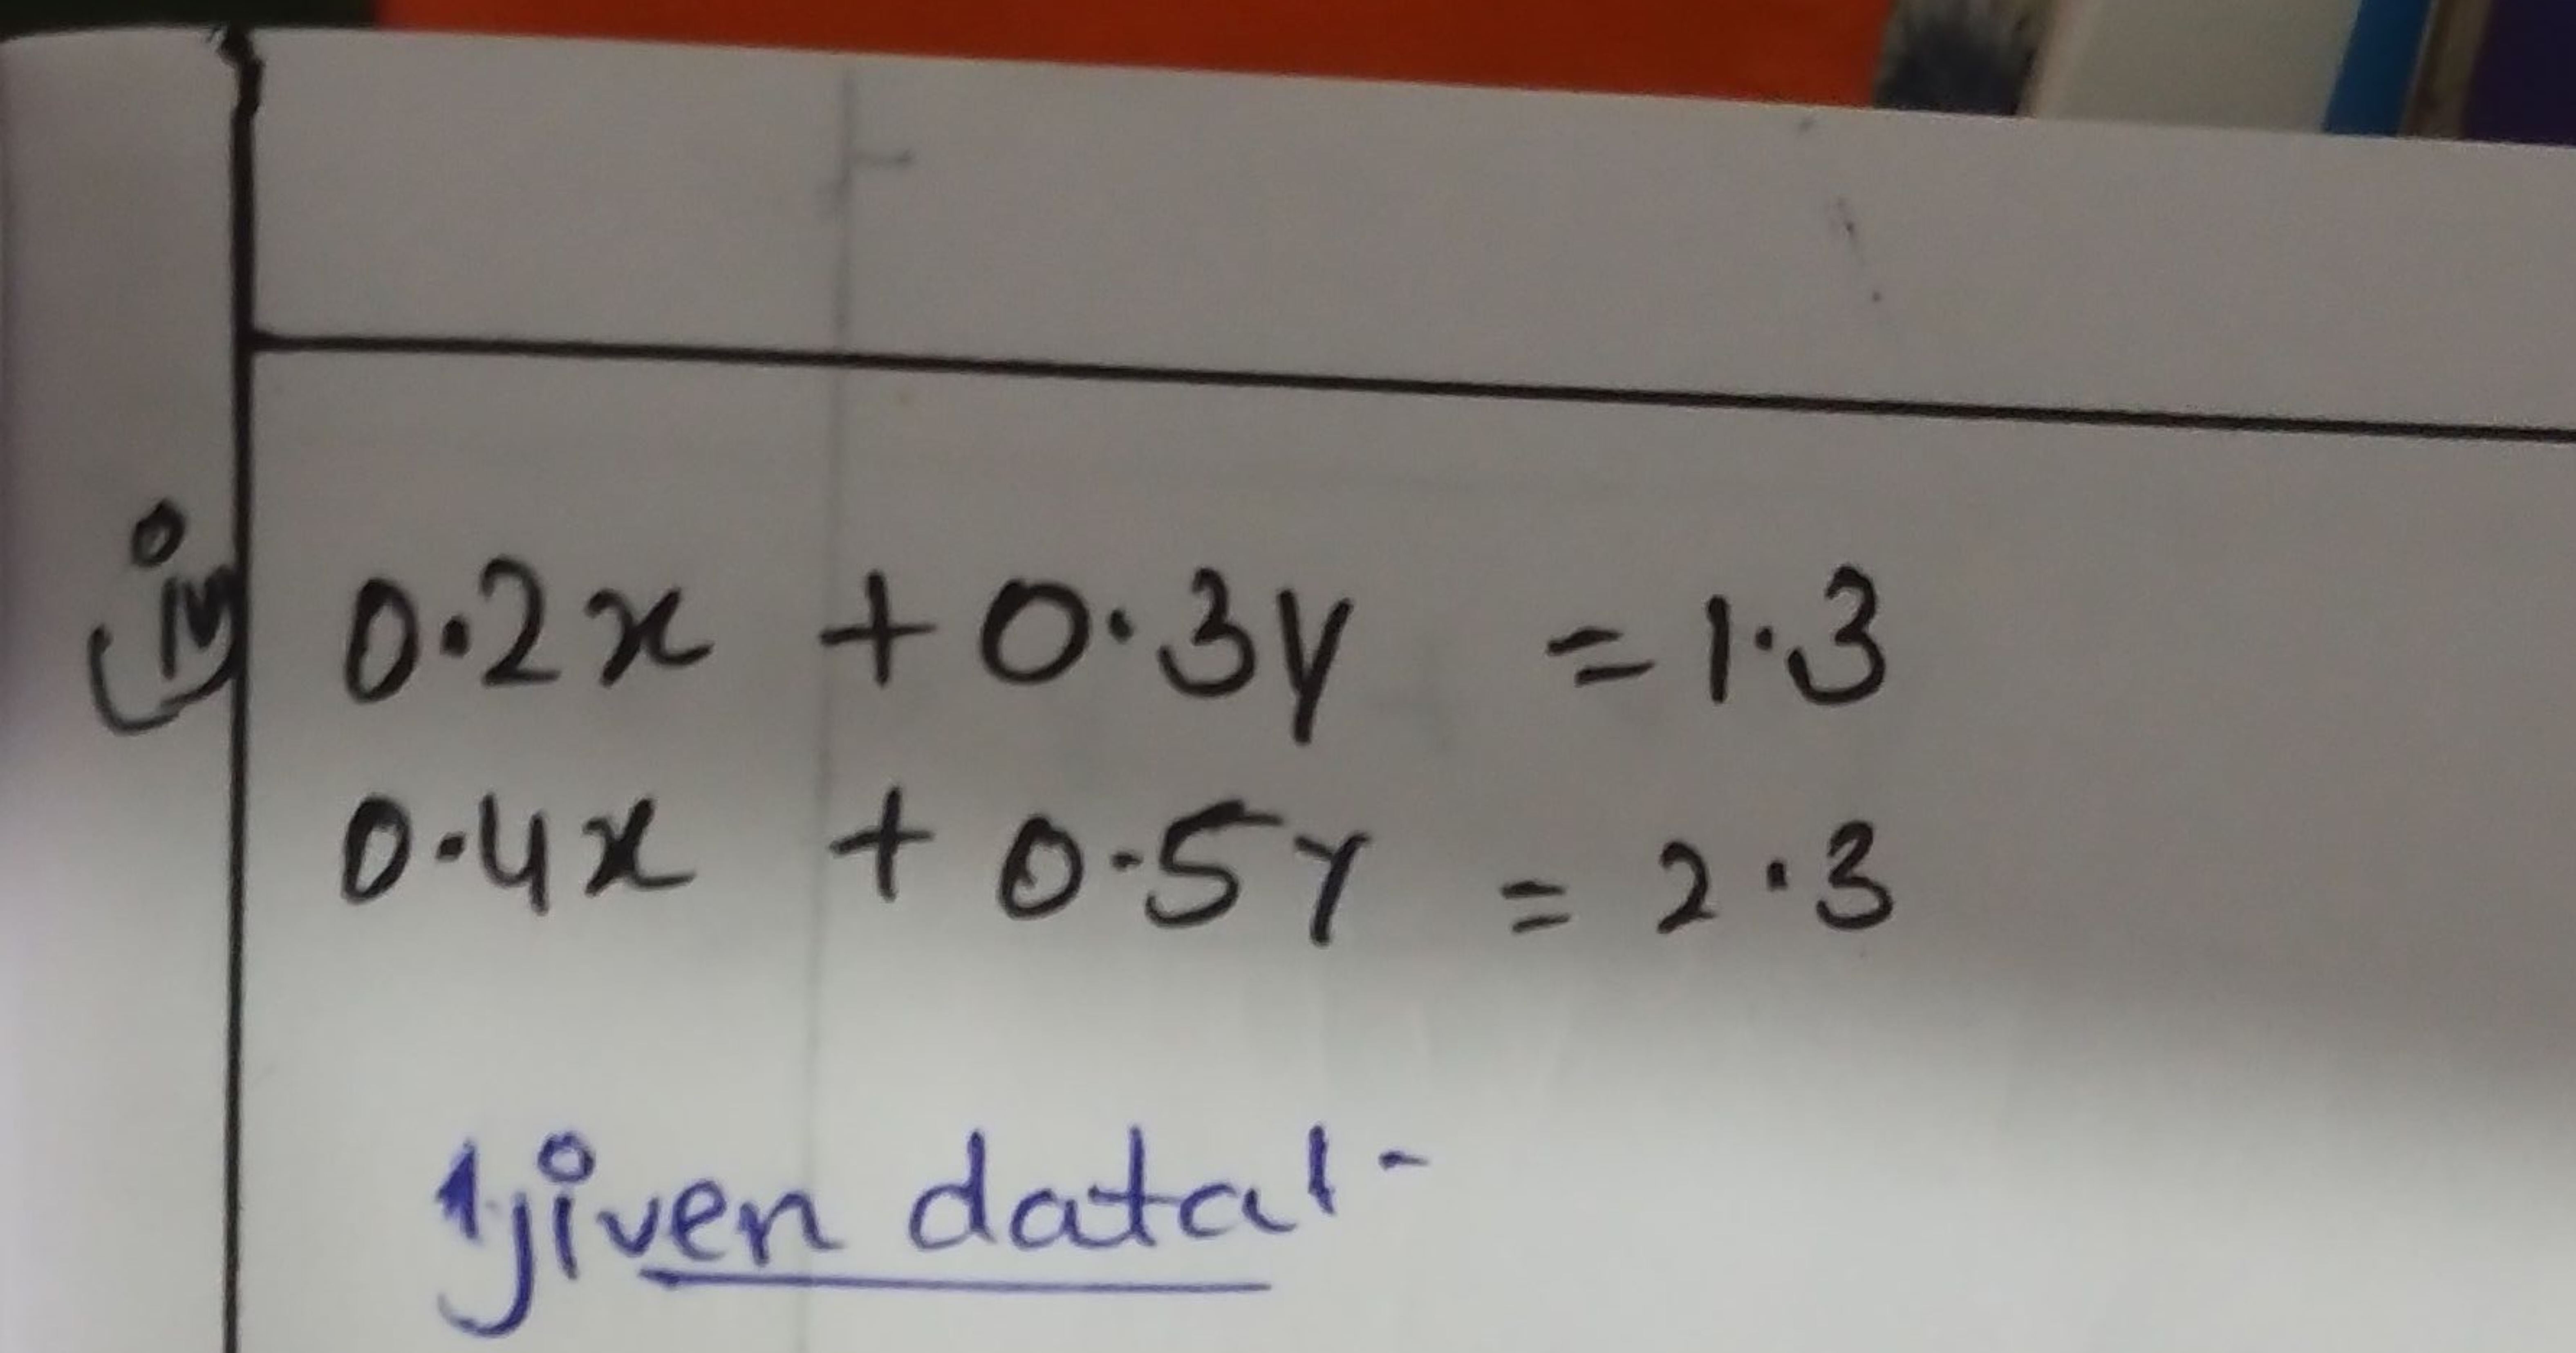 (iv) 0.2x + 0.3y = 1.3
0.4x + 0.5y = 2.3
given data :-